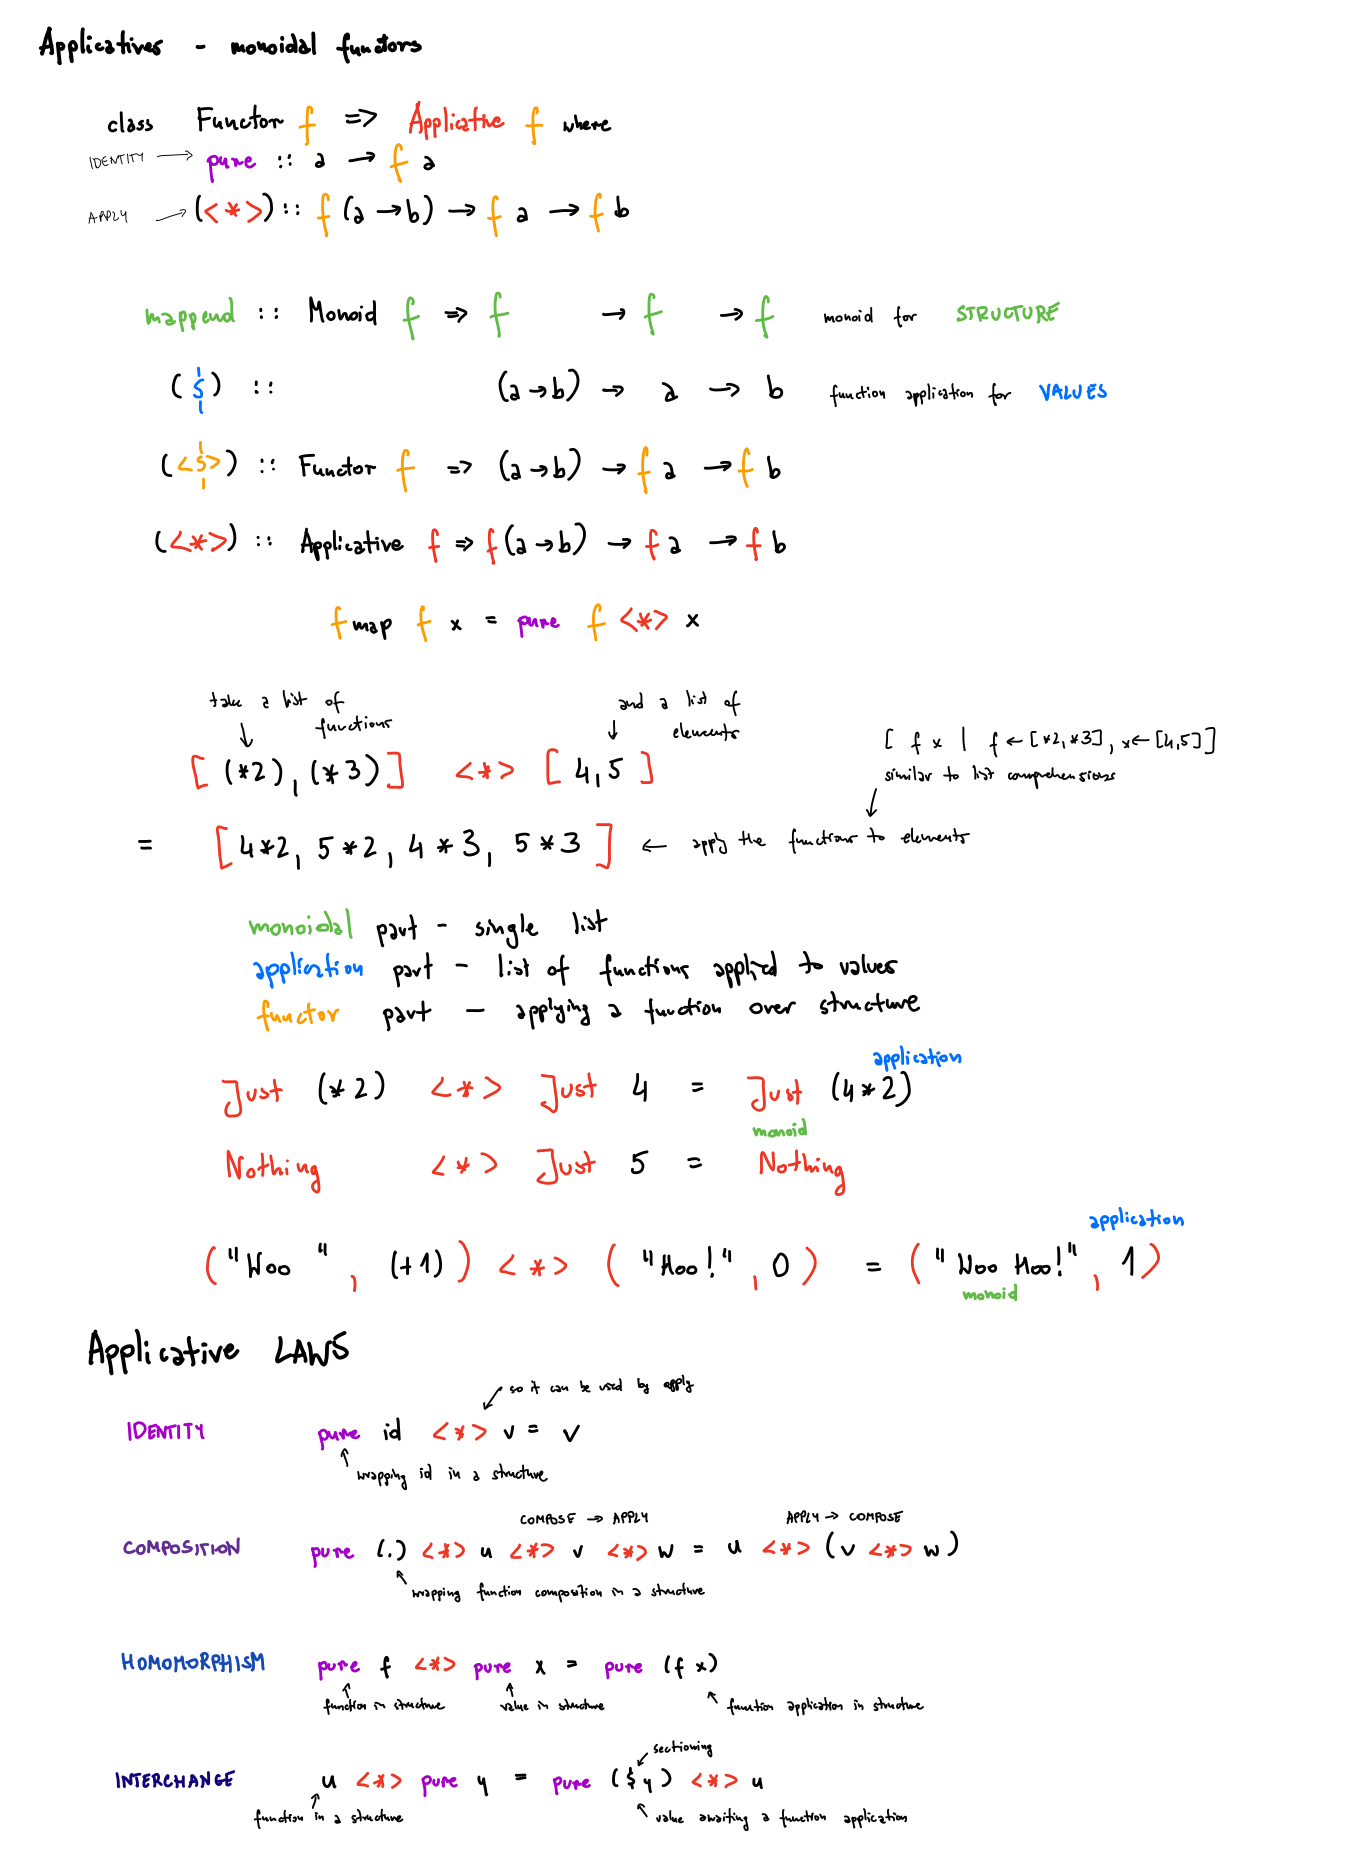 Applicatives - monoidal functors
class Functor f => Applicative f where
IDENTITY → pure :: a → f a
APPLY → (<*>) :: f (a → b) → f a → f b
mappend :: Monoid f => f → f → f monoid for STRUCTURE
($) :: (a → b) → a → b function application for VALUES
(<$>) :: Functor f => (a → b) → f a → f b
(<*>) :: Applicative f => f (a → b) → f a → f b
fmap f x = pure f <*> x
take a list of functions
and a list of elements
[ f x | f ← [*2, *3], x ← [4,5]]
similar to list comprehensions
[ (*2), (*3) ] <*> [ 4, 5 ]
= [ 4*2, 5*2, 4*3, 5*3 ] ← apply the functions to elements
monoidal part - single list
application part - list of functions applied to values
functor part - applying a function over structure
application
Just (*2) <*> Just 4 = Just (4*2)
monoid
Nothing <*> Just 5 = Nothing
application
("Woo ", (+1)) <*> ("Hoo!", 0) = ("Woo Hoo!", 1)
monoid
Applicative LAWS
so it can be used by apply
IDENTITY pure id <*> v = v
wrapping id in a structure
COMPOSE → APPLY APPLY → COMPOSE
COMPOSITION pure (.) <*> u <*> v <*> w = u <*> (v <*> w)
wrapping function composition in a structure
HOMOMORPHISM pure f <*> pure x = pure (f x)
function in structure value in structure function application in structure
sectioning
INTERCHANGE u <*> pure y = pure ($ y) <*> u
function in a structure value awaiting a function application